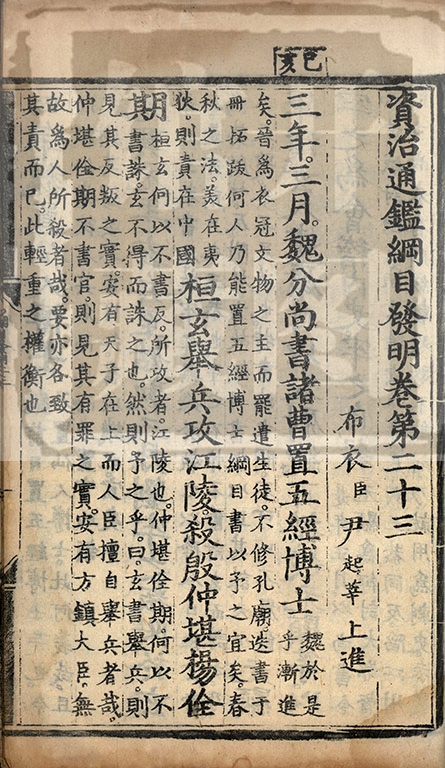 己亥
資治通鑑綱目發明卷第二十三
布衣臣尹起莘上進
三年。三月。魏分尚書諸曹置五經博士
魏於是
乎漸進
矣。晉爲衣冠文物之主而罷遣生徒。不修孔廟迭書于
冊。拓跋何人乃能置五經博士綱目書以予之宜矣。春
秋之法。美在夷
狄。則責在中國
桓玄舉兵攻江陵。殺殷仲堪楊佺
期
桓玄何以不書反。所攻者。江陵也。仲堪佺期。何以不
書誅。玄不得而誅之也。然則予之乎。曰。玄書舉兵。則
見其反叛之實。安有天子在上而人臣擅自舉兵者哉。
仲堪佺期不書官。則見其有罪之實。安有方鎭大臣。無
故爲人所殺者哉。要亦各致
其責而已。此輕重之權衡也